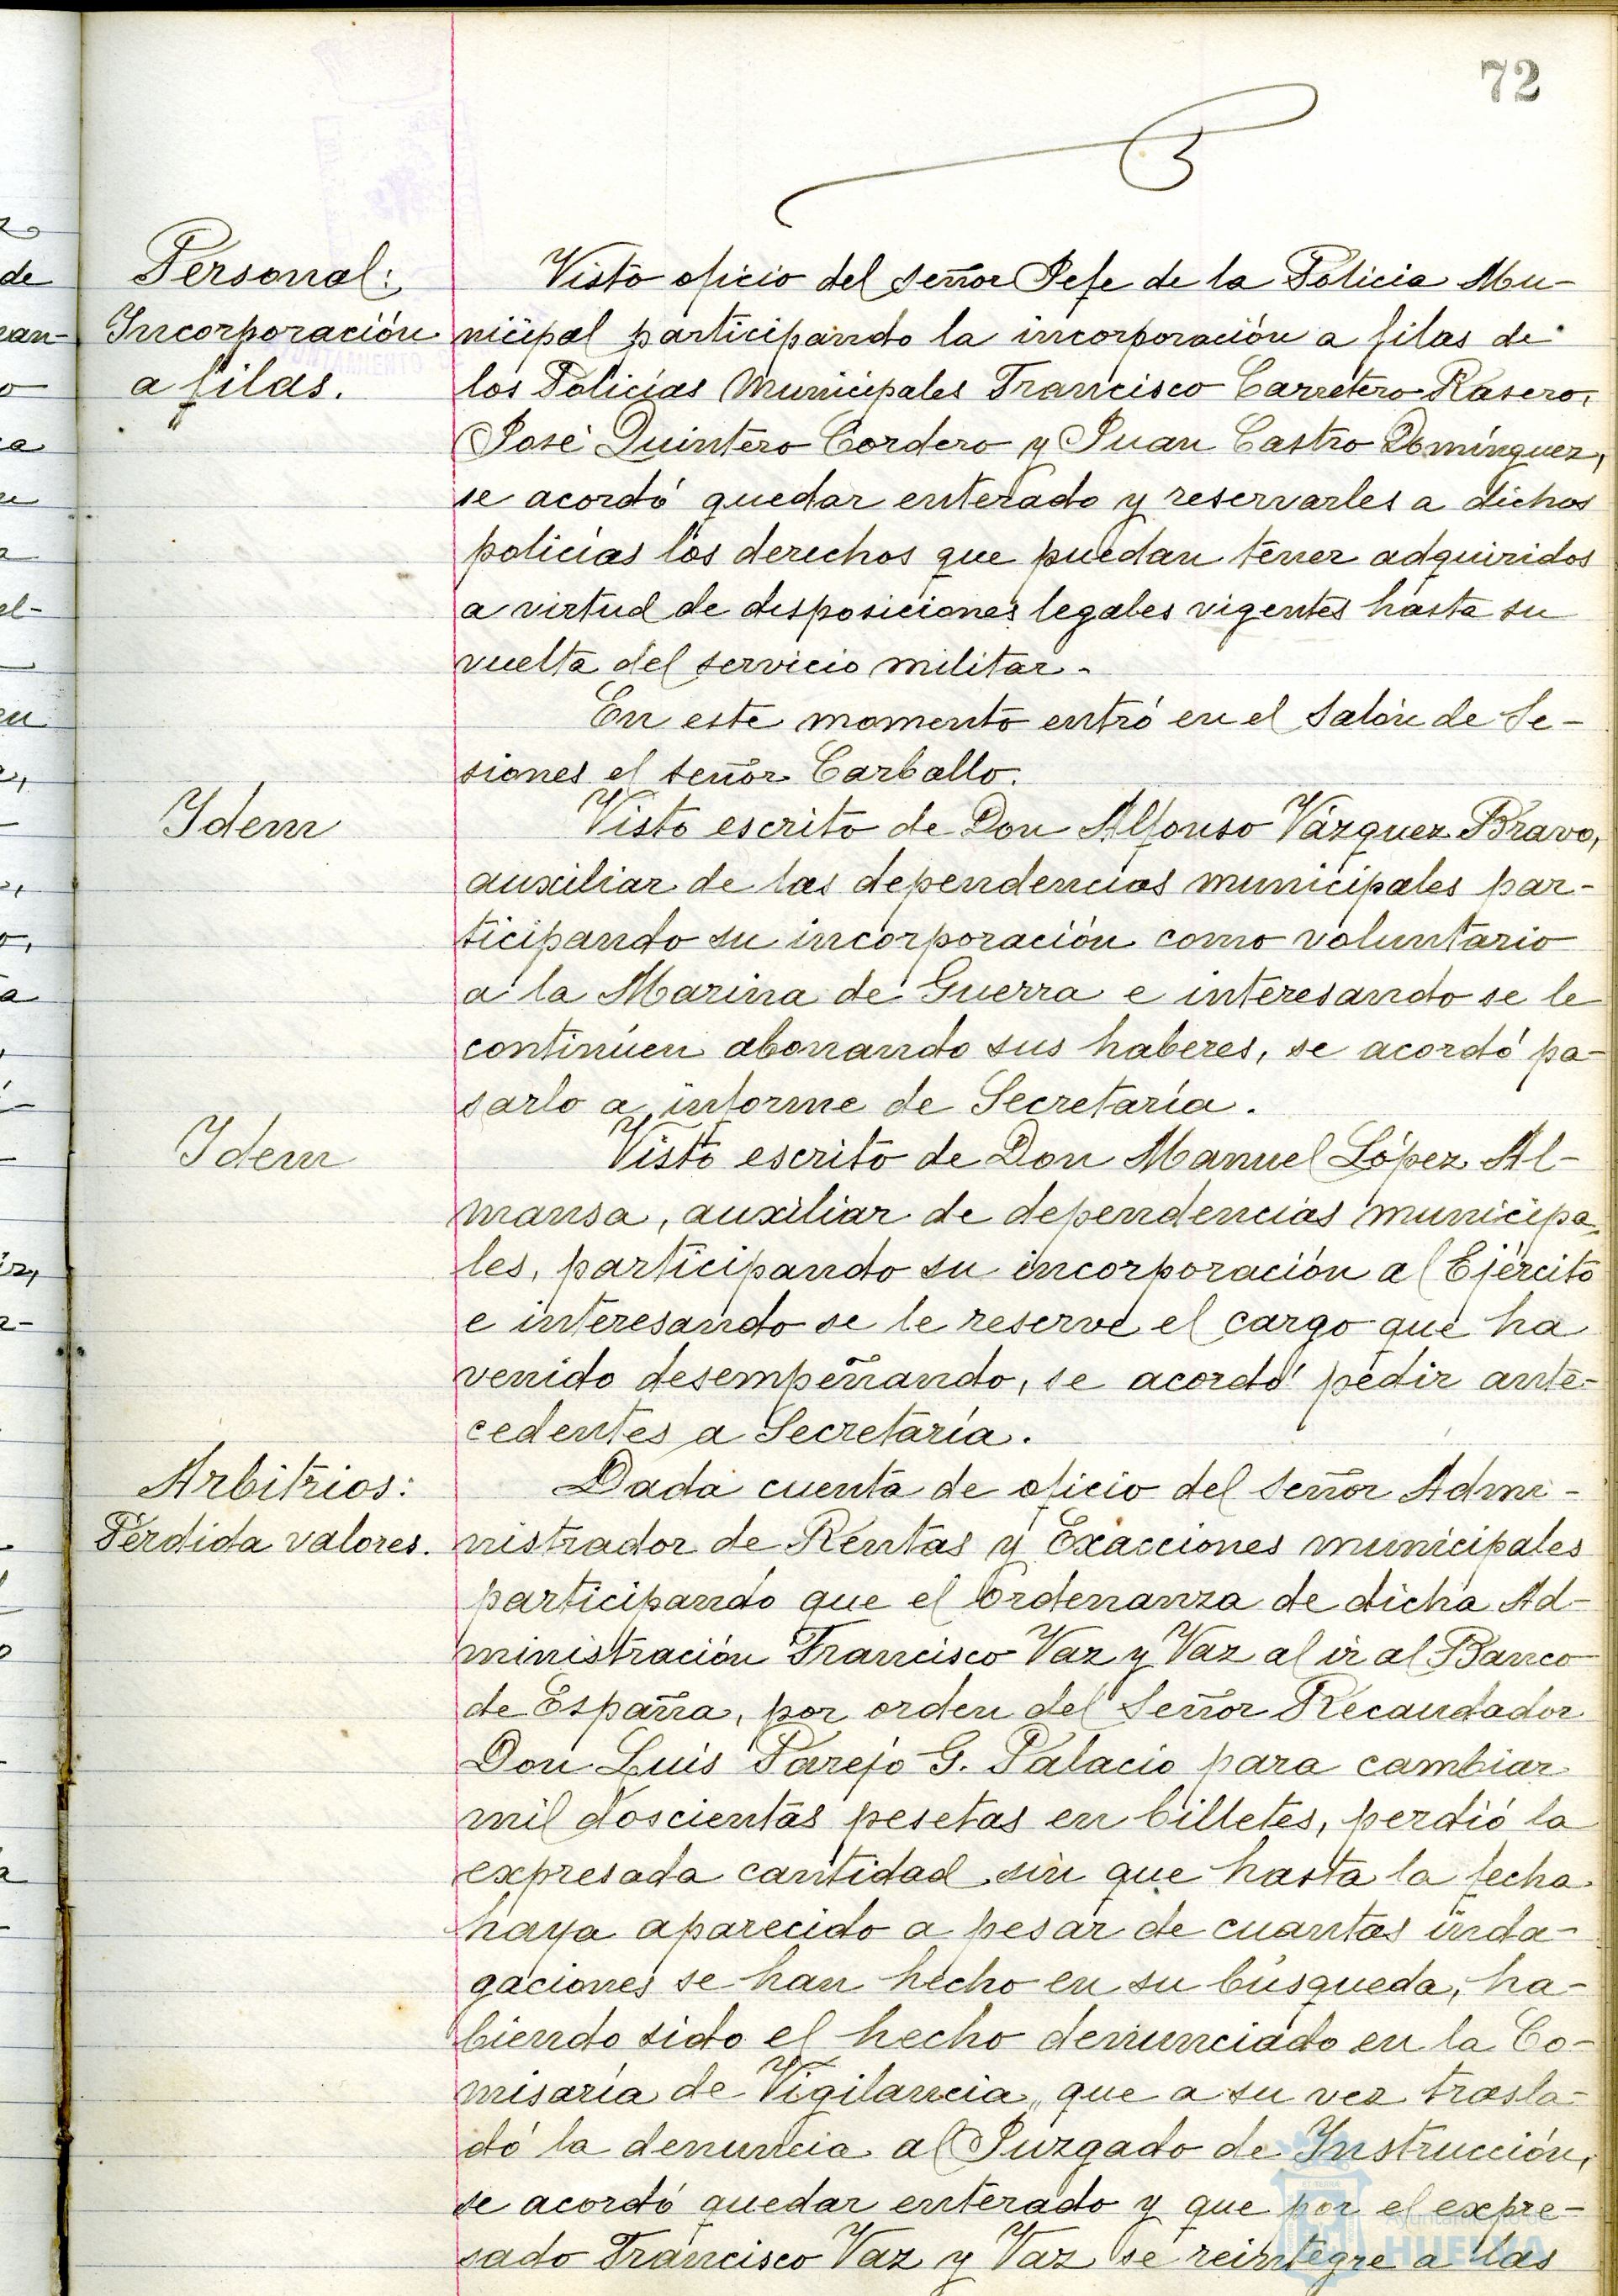 72
Personal:
Incorporación
a filas.
Visto oficio del señor Jefe de la Policia Mu-
nicipal participando la incorporación a filas de
los Policías Municipales Francisco Carretero Rasero,
José Quintero Cordero y Juan Castro Domínguez,
se acordó quedar enterado y reservarles a dichos
policías los derechos que puedan tener adquiridos
a virtud de disposiciones legales vigentes hasta su
vuelta del servicio militar.
En este momento entró en el Salón de Se-
siones el señor Carballo.
Idem
Visto escrito de Don Alfonso Vázquez Bravo,
auxiliar de las dependencias municipales par-
ticipando su incorporación como voluntario
a la Marina de Guerra e interesando se le
continúen abonando sus haberes, se acordó pa-
sarlo a informe de Secretaría.
Idem
Visto escrito de Don Manuel López Al-
mansa, auxiliar de dependencias municipa-
les, participando su incorporación al Ejército
e interesando se le reserve el cargo que ha
venido desempeñando, se acordó pedir ante-
cedentes a Secretaría.
Arbitrios:
Pérdida valores.
Dada cuenta de oficio del Señor Admi-
nistrador de Rentas y Exacciones municipales
participando que el Ordenanza de dicha Ad-
ministración Francisco Vaz y Vaz al ir al Banco
de España, por orden del Señor Recaudador
Don Luis Parejo G. Palacio para cambiar
mil doscientas pesetas en billetes, perdió la
expresada cantidad sin que hasta la fecha
haya aparecido a pesar de cuantas inda-
gaciones se han hecho en su búsqueda, ha-
biendo sido el hecho denunciado en la Co-
misaría de Vigilancia, que a su vez trasla-
dó la denuncia al Juzgado de Instrucción,
se acordó quedar enterado y que por el expre-
sado Francisco Vaz y Vaz se reintegre a las
Ayuntamiento de
HUELVA